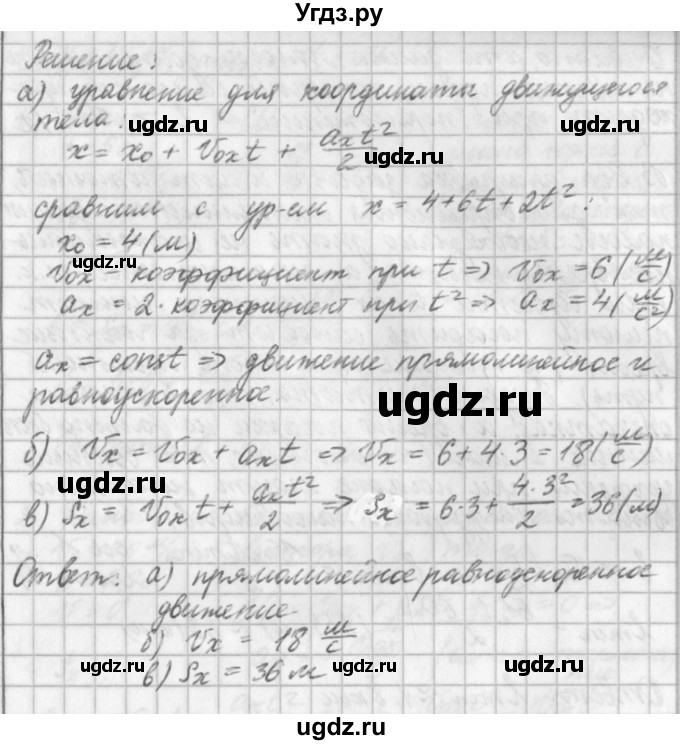 Угдз.ру
Решение:
а) уравнение для координаты движущегося
тела:
ugdz.ru ugdz.ru
x = x₀ + V₀ₓt + aₓt²/2
ugdz.ru
сравним с ур-ем x = 4+6t+2t²:
x₀ = 4(м)
ugdz.ru ugdz.ru
V₀ₓ = коэффициент при t => V₀ₓ = 6(м/с)
aₓ = 2·коэффициент при t² => aₓ = 4(м/с²)
ugdz.ru ugdz.ru
aₓ = const => движение прямолинейное и
равноускоренное.
ugdz.ru
б) Vₓ = V₀ₓ + aₓt => Vₓ = 6+4·3 = 18(м/с)
ugdz.ru ugdz.ru
в) Sₓ = V₀ₓt + aₓt²/2 => Sₓ = 6·3 + 4·3²/2 = 36(м)
ugdz.ru
Ответ: а) прямолинейное равноускоренное
движение.
б) Vₓ = 18 м/с
ugdz.ru ugdz.ru
в) Sₓ = 36 м
ugdz.ru
ugdz.ru